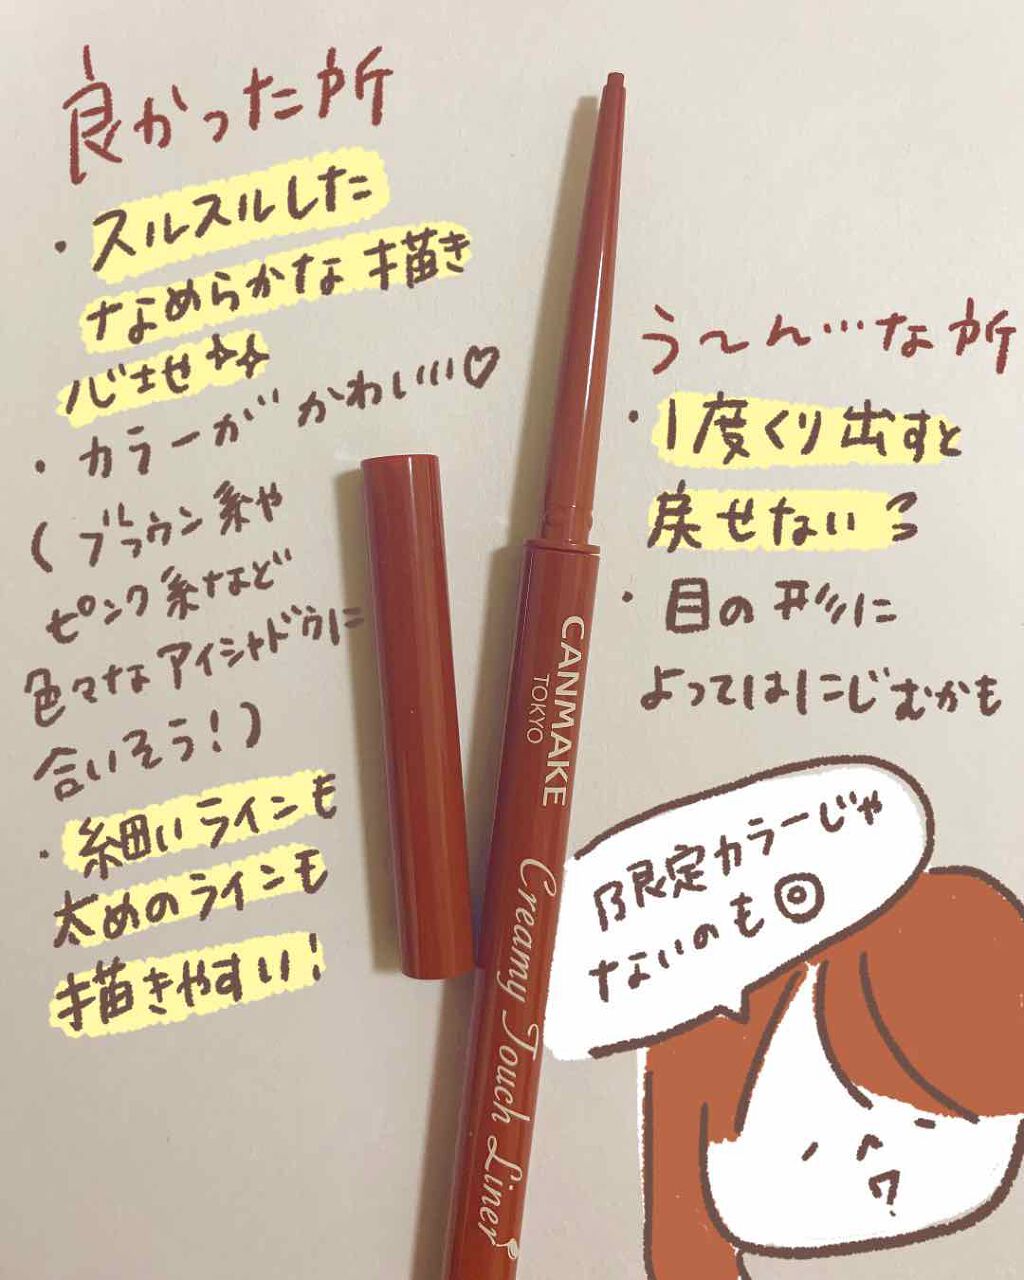 良かった所
・スルスルした
なめらかな描き
心地✨
・カラーがかわいい♡
(ブラウン系や
ピンク系など
色々なアイシャドウに
合いそう!)
・細いラインも
太めのラインも
描きやすい!
う〜ん…な所
・1度くり出すと
戻せない
・目の形に
よってはにじむかも
限定カラーじゃ
ないのも◎
CANMAKE
TOKYO
Creamy Touch Liner